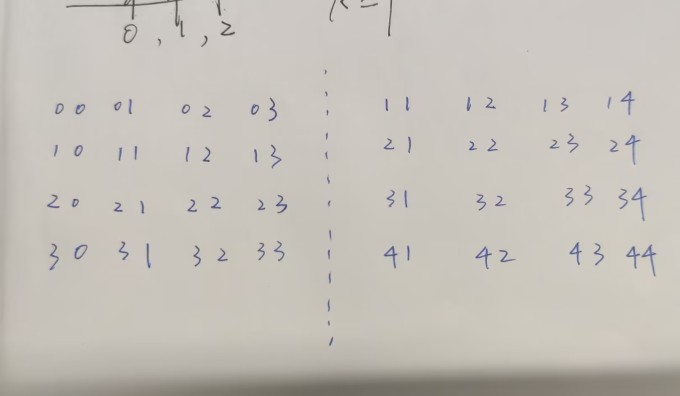 0 , 1 , 2
00 01 02 03 11 12 13 14
10 11 12 13 21 22 23 24
20 21 22 23 31 32 33 34
30 31 32 33 41 42 43 44